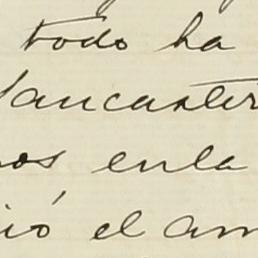 todo ha
Lancaster
os enla
ió el am